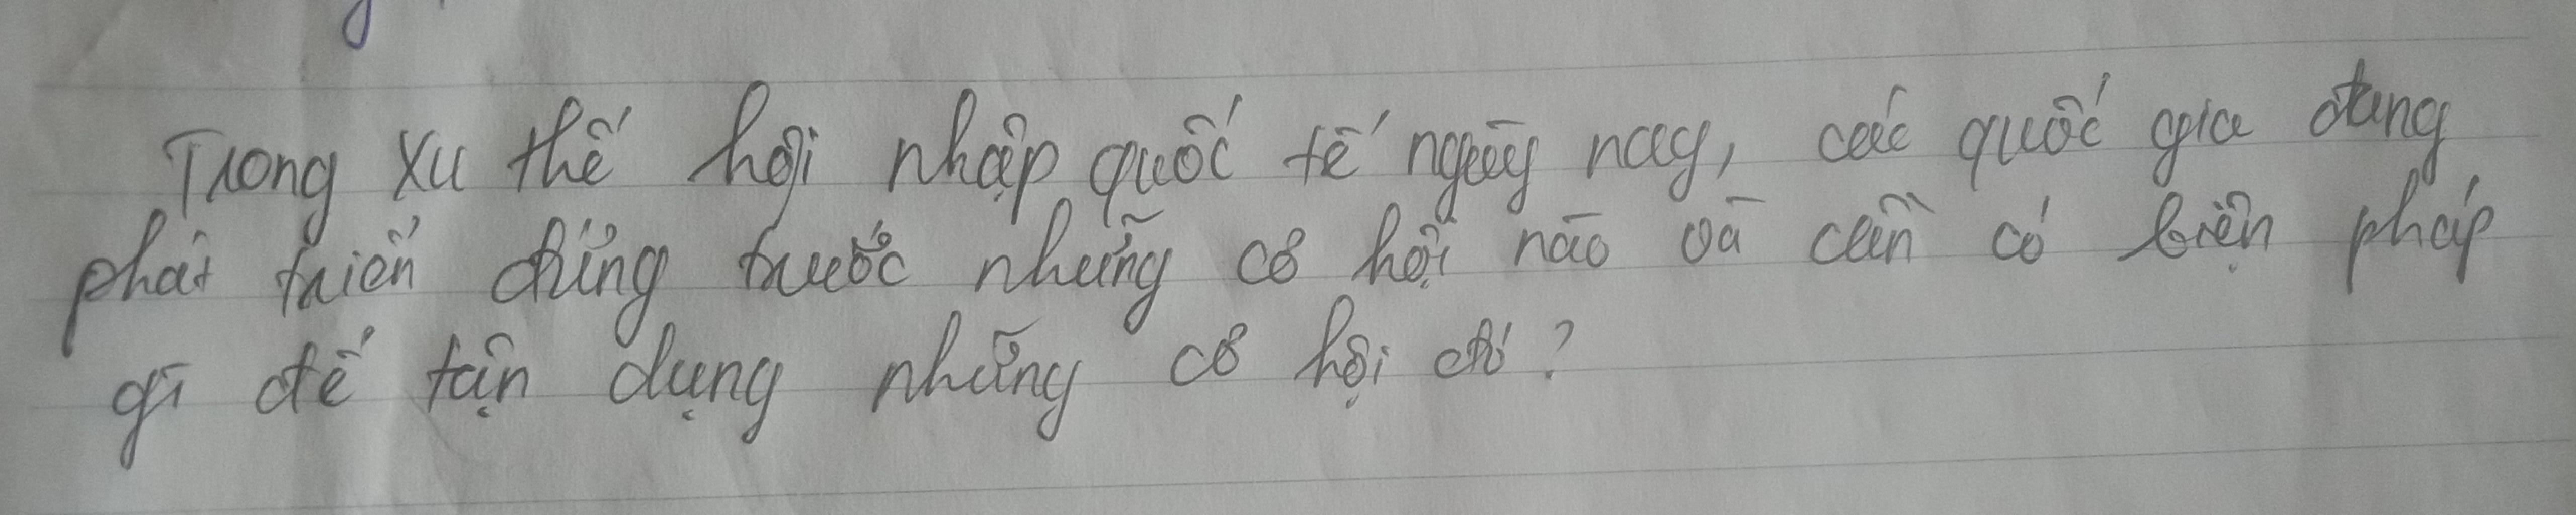 Trong xu thế hội nhập quốc tế ngày nay, các quốc gia đang
phát triển đứng trước những cơ hội nào và cần có biện pháp
gì để tận dụng những cơ hội đó?